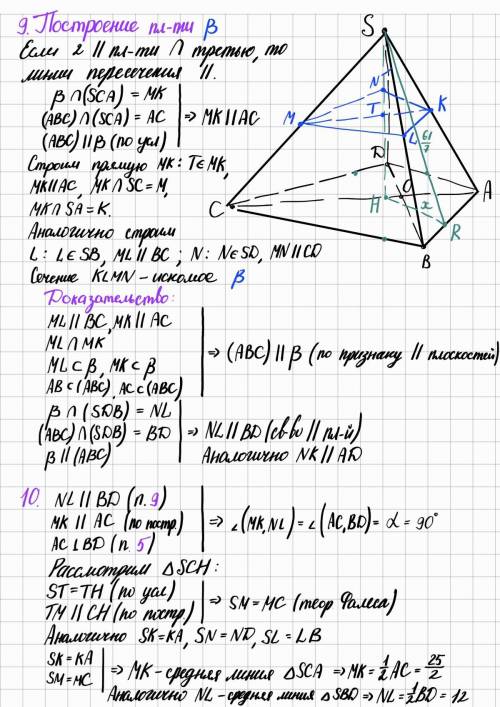 9. Построение пл-ти β
Если 2 || пл-ти ∩ третью, то
линии пересечения ||.
β ∩ (SCA) = MK
(ABC) ∩ (SCA) = AC ⇒ MK || AC
(ABC) || β (по усл)
Строим прямую MK: T∈MK,
MK||AC, MK∩SC=M,
MK∩SA=K.
Аналогично строим
L: L∈SB, ML||BC; N: N∈SD, MN||CD
Сечение KLMN – искомое β
S
N
M
T
K
L
61/7
D
C
H
O
x
A
R
B
Доказательство:
ML || BC, MK || AC
ML ∩ MK
ML ⊂ β, MK ⊂ β ⇒ (ABC) || β (по признаку || плоскостей)
AB ⊂ (ABC), AC ⊂ (ABC)
β ∩ (SDB) = NL
(ABC) ∩ (SDB) = BD ⇒ NL || BD (св-во || пл-й)
β || (ABC) Аналогично NK || AD
10. NL || BD (п. 9)
MK || AC (по постр.) ⇒ ∠(MK, NL) = ∠(AC, BD) = α = 90°
AC ⊥ BD (п. 5)
Рассмотрим △SCH:
ST = TH (по усл)
TM || CH (по постр) ⇒ SM = MC (теор Фалеса)
Аналогично SK = KA, SN = ND, SL = LB
SK = KA
SM = MC ⇒ MK – средняя линия △SCA ⇒ MK = 1/2 AC = 25/2
Аналогично NL – средняя линия △SBD ⇒ NL = 1/2 BD = 12